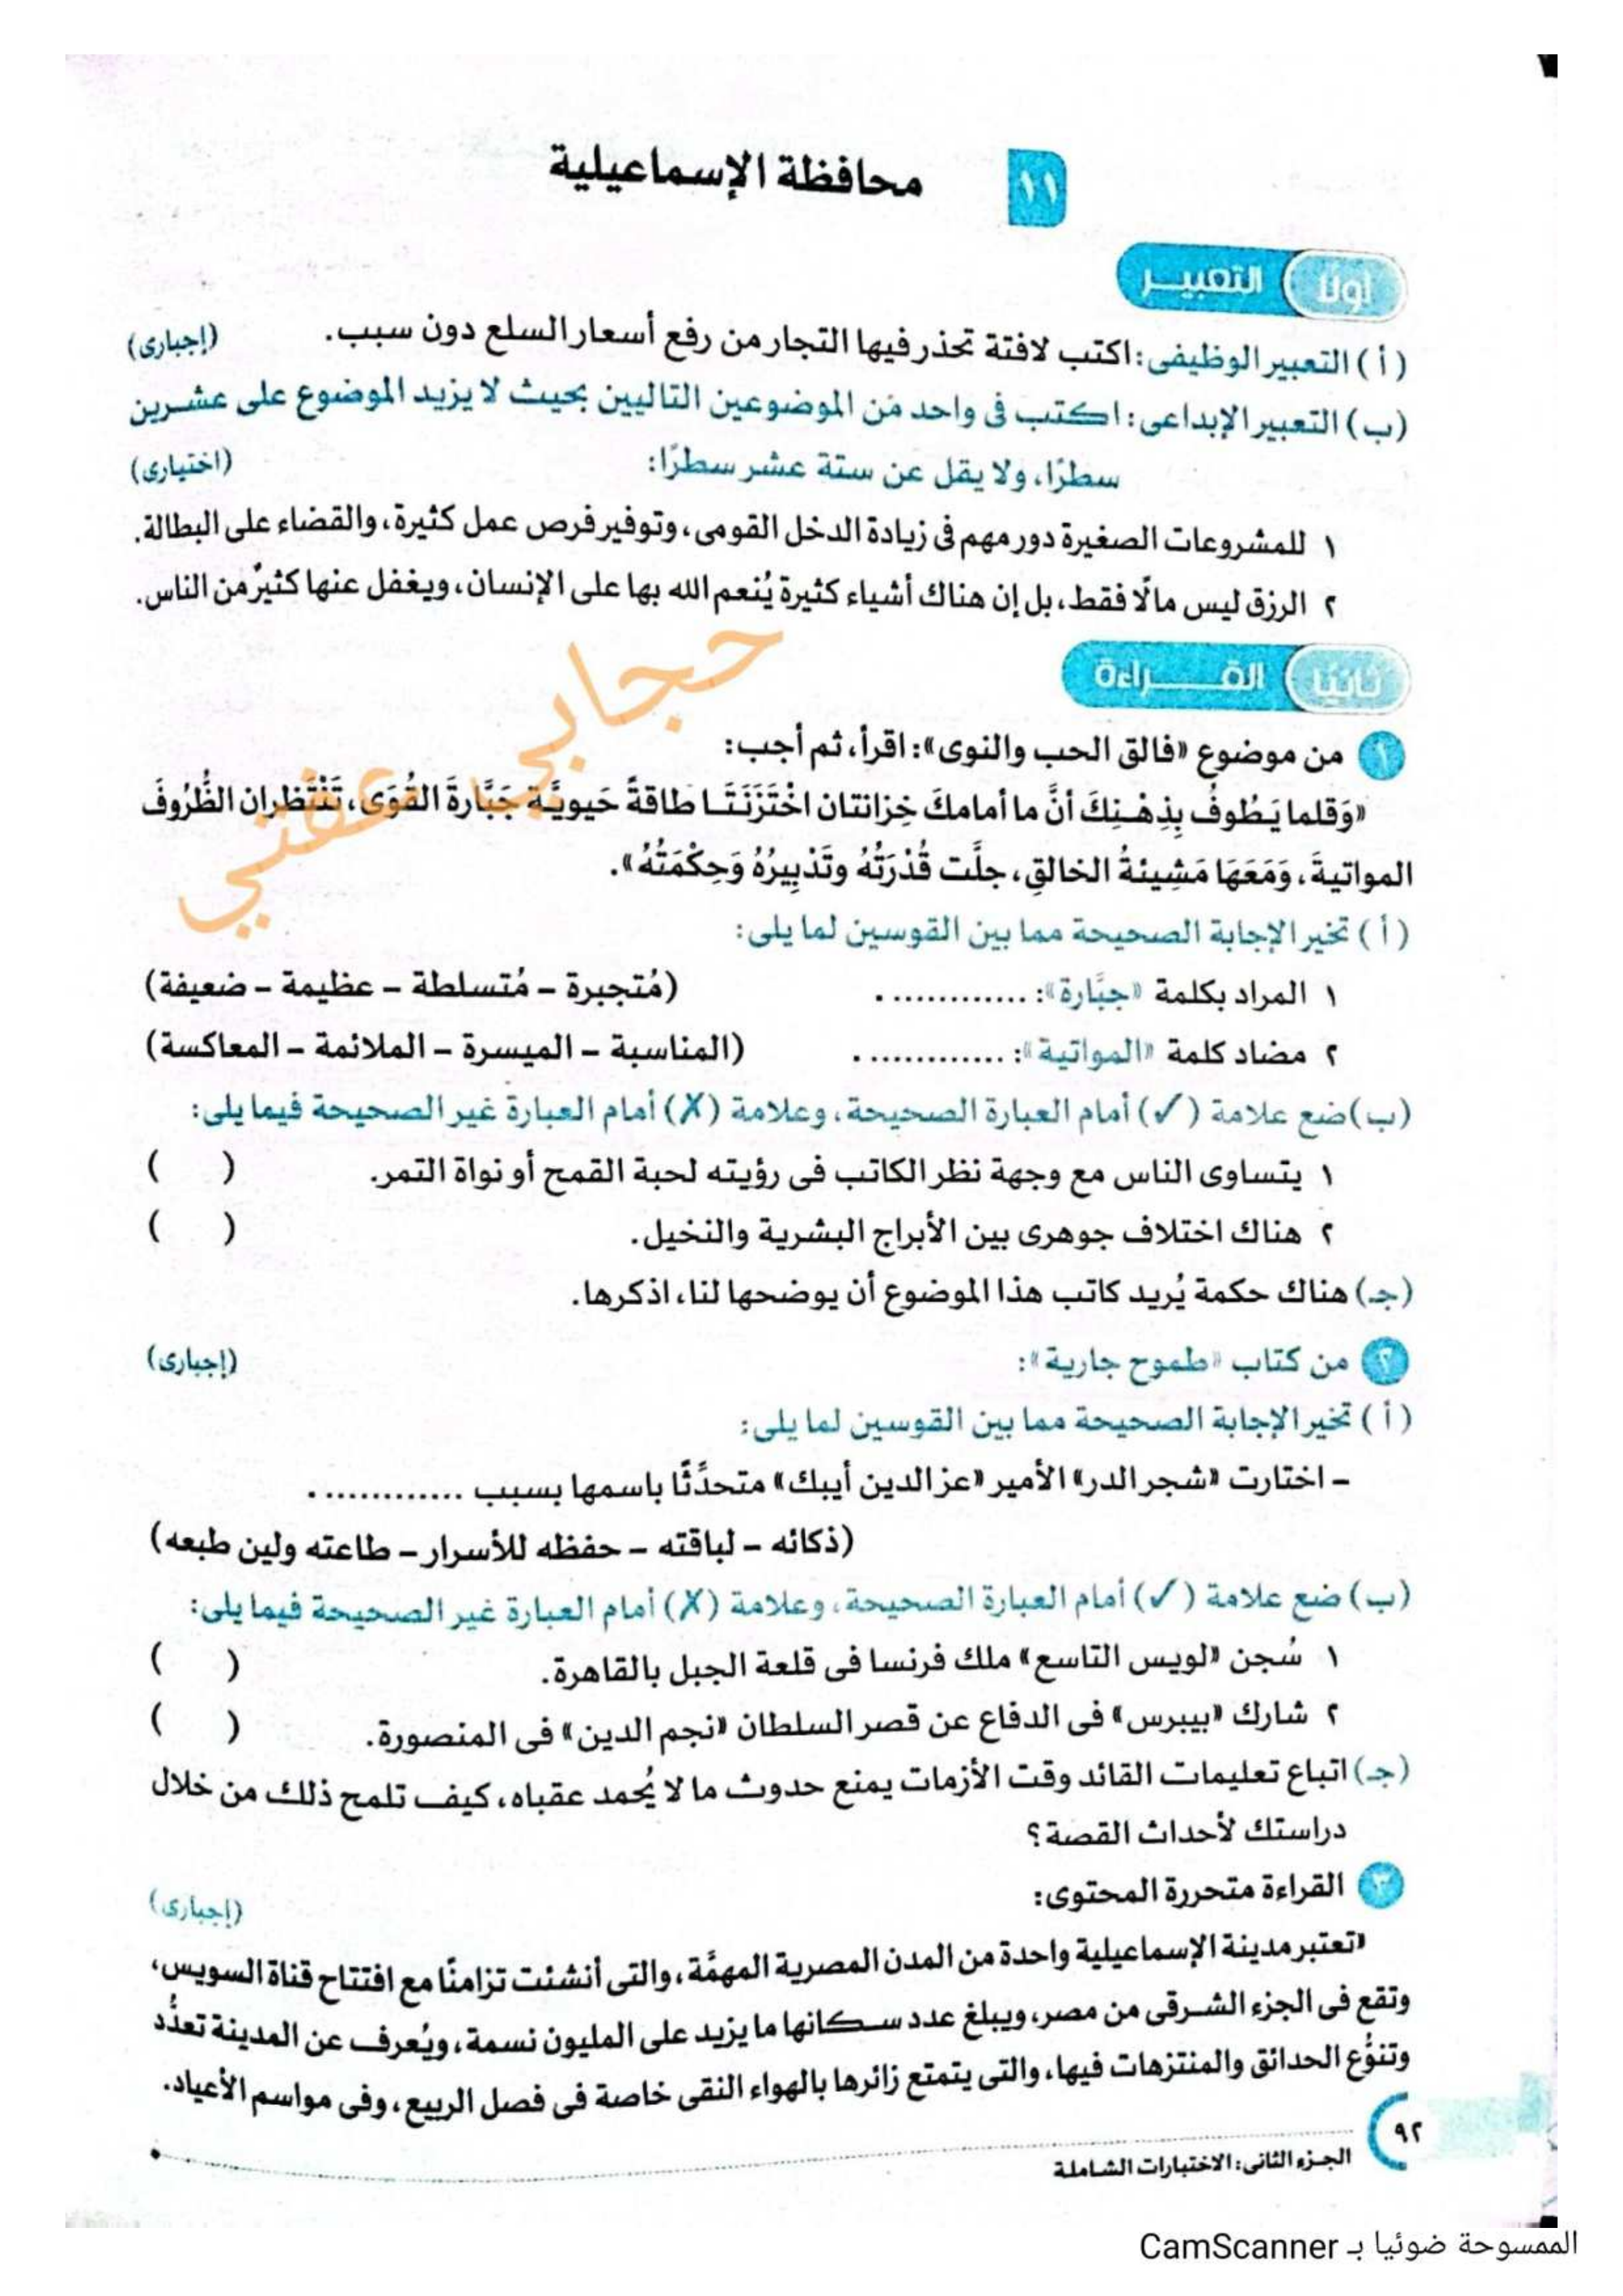 ١١ محافظة الإسماعيلية
أولا التعبيـر
(أ) التعبير الوظيفى: اكتب لافتة تحذر فيها التجار من رفع أسعار السلع دون سبب. (إجبارى)
(ب) التعبير الإبداعى: اكتب فى واحد من الموضوعين التاليين بحيث لا يزيد الموضوع على عشرين
سطرًا، ولا يقل عن ستة عشر سطرًا: (اختيارى)
١ للمشروعات الصغيرة دور مهم فى زيادة الدخل القومى، وتوفير فرص عمل كثيرة، والقضاء على البطالة.
٢ الرزق ليس مالًا فقط، بل إن هناك أشياء كثيرة يُنعم الله بها على الإنسان، ويغفل عنها كثيرٌ من الناس.
ثانيًا القـراءة
١ من موضوع «فالق الحب والنوى»: اقرأ، ثم أجب:
«وَقلما يَطُوفُ بِذِهْنِكَ أنَّ ما أمامكَ خِزانتان اخْتَزَنَتَا طاقةً حَيويَّة جَبَّارةَ القُوَى، تَنْتَظِران الظُّرُوفَ
المواتيةَ، وَمَعَهَا مَشِيئةُ الخالقِ، جلَّت قُدْرَتُهُ وتَدْبِيرُهُ وَحِكْمَتُهُ».
حجابي عفتي
(أ) تخير الإجابة الصحيحة مما بين القوسين لما يلى:
١ المراد بكلمة «جبَّارة»: ............. (مُتجبرة – مُتسلطة – عظيمة – ضعيفة)
٢ مضاد كلمة «المواتية»: ............. (المناسبة – الميسرة – الملائمة – المعاكسة)
(ب) ضع علامة (✓) أمام العبارة الصحيحة، وعلامة (✗) أمام العبارة غير الصحيحة فيما يلى:
١ يتساوى الناس مع وجهة نظر الكاتب فى رؤيته لحبة القمح أو نواة التمر. ( )
٢ هناك اختلاف جوهرى بين الأبراج البشرية والنخيل. ( )
(جـ) هناك حكمة يُريد كاتب هذا الموضوع أن يوضحها لنا، اذكرها.
٢ من كتاب «طموح جارية»: (إجبارى)
(أ) تخير الإجابة الصحيحة مما بين القوسين لما يلى:
– اختارت «شجر الدر» الأمير «عز الدين أيبك» متحدِّثًا باسمها بسبب .............
(ذكائه – لباقته – حفظه للأسرار – طاعته ولين طبعه)
(ب) ضع علامة (✓) أمام العبارة الصحيحة، وعلامة (✗) أمام العبارة غير الصحيحة فيما يلى:
١ سُجن «لويس التاسع» ملك فرنسا فى قلعة الجبل بالقاهرة. ( )
٢ شارك «بيبرس» فى الدفاع عن قصر السلطان «نجم الدين» فى المنصورة. ( )
(جـ) اتباع تعليمات القائد وقت الأزمات يمنع حدوث ما لا يُحمد عقباه، كيف تلمح ذلك من خلال
دراستك لأحداث القصة؟
٣ القراءة متحررة المحتوى: (إجبارى)
«تعتبر مدينة الإسماعيلية واحدة من المدن المصرية المهمَّة، والتى أنشئت تزامنًا مع افتتاح قناة السويس،
وتقع فى الجزء الشرقى من مصر، ويبلغ عدد سكانها ما يزيد على المليون نسمة، ويُعرف عن المدينة تعدُّد
وتنوُّع الحدائق والمنتزهات فيها، والتى يتمتع زائرها بالهواء النقى خاصة فى فصل الربيع، وفى مواسم الأعياد.
٩٢
الجزء الثانى: الاختبارات الشاملة
الممسوحة ضوئيا بـ CamScanner